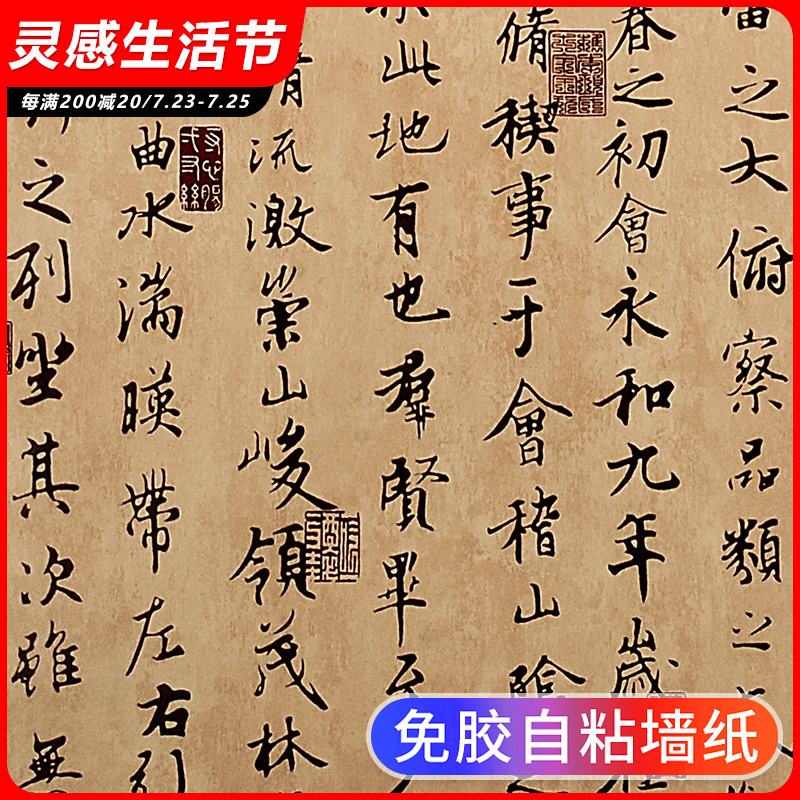 灵感生活节
每满200减20/7.23-7.25
之大俯察品類之
春之初會永和九年歲在
脩稧事于會稽山陰之
此地有也羣賢畢至
清流激崇山峻領茂林
曲水湍暎帶左右引
之列坐其次雖無
免胶自粘墙纸